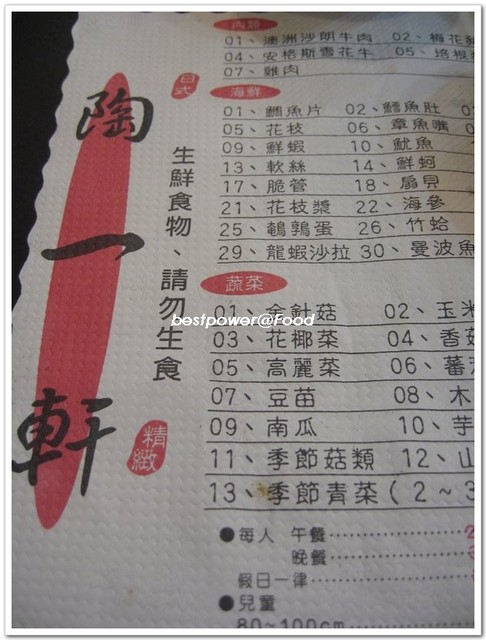 日式
陶一軒
精緻
生鮮食物、請勿生食
肉類
01、澳洲沙朗牛肉 02、梅花
04、安格斯雪花牛 05、培根
07、雞肉
海鮮
01、鯛魚片 02、鱈魚肚
05、花枝 06、章魚嘴
09、鮮蝦 10、魷魚
13、軟絲 14、鮮蚵
17、脆管 18、扇貝
21、花枝漿 22、海參
25、鵪鶉蛋 26、竹蛤
29、龍蝦沙拉 30、曼波魚
蔬菜
01、金針菇 02、玉米
bestpower@Food
03、花椰菜 04、香菇
05、高麗菜 06、蕃
07、豆苗 08、木
09、南瓜 10、芋
11、季節菇類 12、山
13、季節青菜(2~3
●每人 午餐
晚餐
假日一律
●兒童
80~100cm